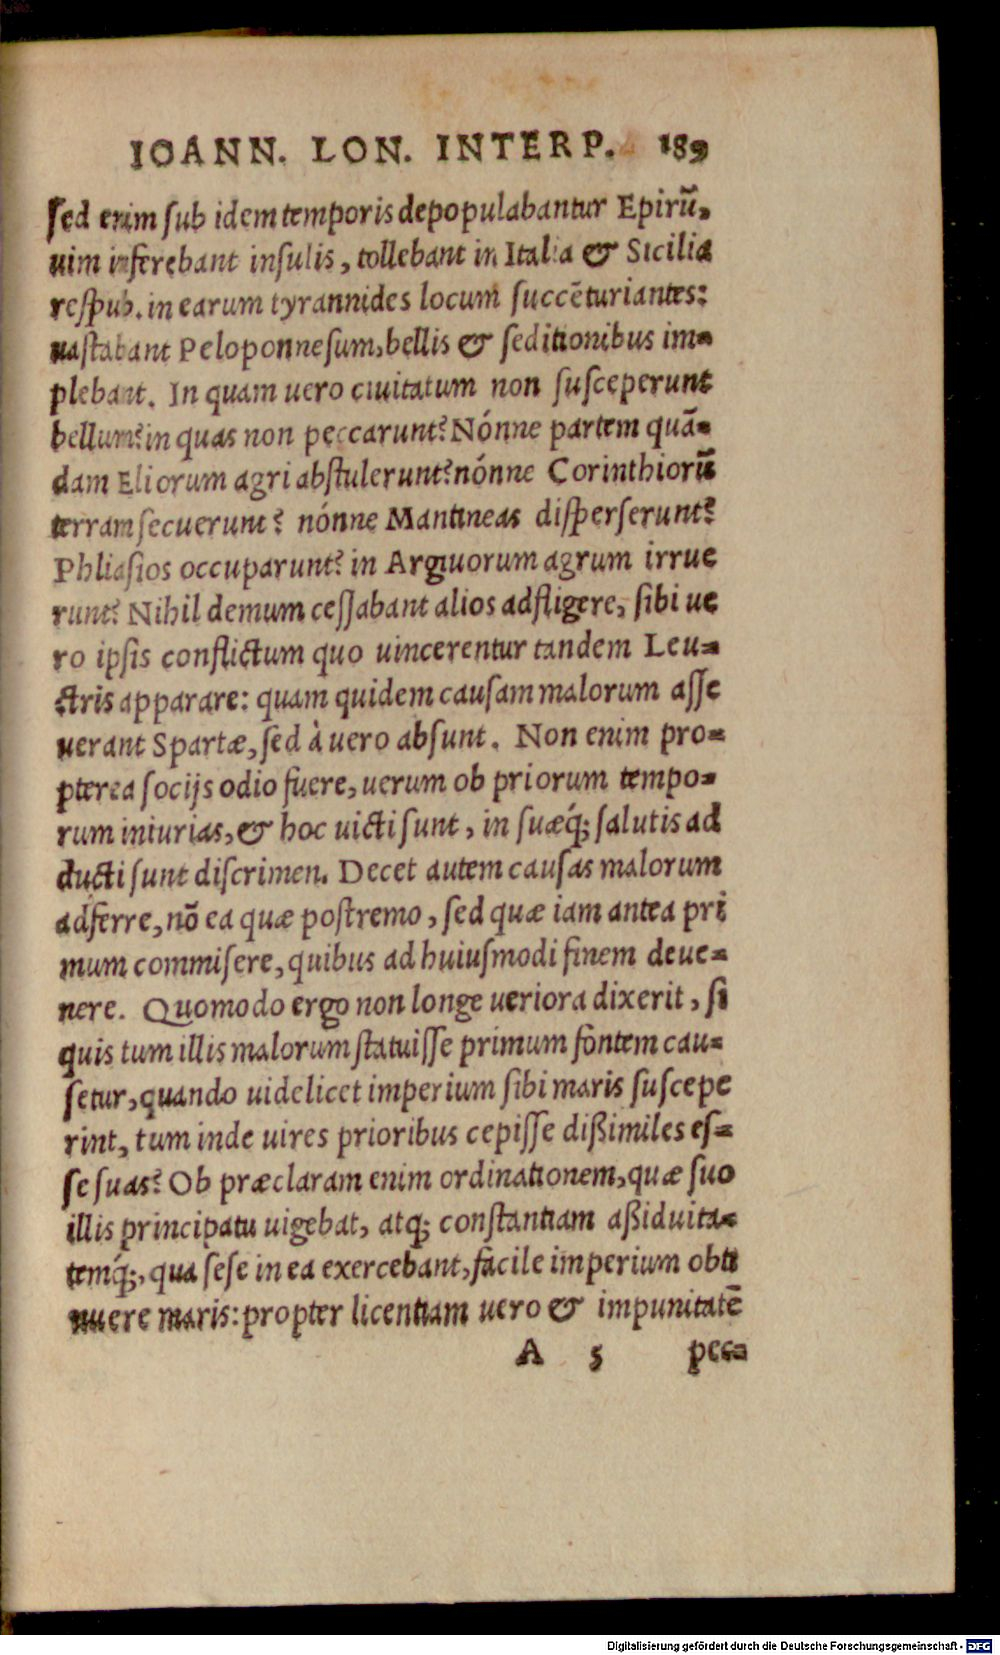 IOANN. LON. INTERP. 189
ſed enim ſub idem temporis depopulabantur Epirũ,
uim inferebant inſulis, tollebant in Italia & Sicilia
reſpub. in earum tyrannides locum ſuccẽturiantes:
uaſtabant Peloponneſum, bellis & ſeditionibus im-
plebant. In quam uero ciuitatum non ſuſceperunt
bellum? in quas non peccarunt? Nónne partem quã-
dam Eliorum agri abſtulerunt? nónne Corinthiorũ
terram ſecuerunt? nónne Mantineas diſperſerunt?
Phliaſios occuparunt? in Argiuorum agrum irrue
runt? Nihil demum ceſſabant alios adfligere, ſibi ue
ro ipſis conflictum quo uincerentur tandem Leu-
ctris apparare: quam quidem cauſam malorum aſſe
uerant Spartæ, ſed à uero abſunt. Non enim pro-
pterea ſocijs odio fuere, uerum ob priorum tempo-
rum iniurias, & hoc uicti ſunt, in ſuæq́; ſalutis ad
ducti ſunt diſcrimen. Decet autem cauſas malorum
adferre, nõ ea quæ poſtremo, ſed quæ iam antea pri
mum commiſere, quibus ad huiuſmodi finem deue-
nere. Quomodo ergo non longe ueriora dixerit, ſi
quis tum illis malorum ſtatuiſſe primum fontem cau-
ſetur, quando uidelicet imperium ſibi maris ſuſcepe
rint, tum inde uires prioribus cepiſſe dißimiles eſ-
ſe ſuas? Ob præclaram enim ordinationem, quæ ſuo
illis principatu uigebat, atq; conſtantiam aßiduita-
temq́;, qua ſeſe in ea exercebant, facile imperium obti
nuere maris: propter licentiam uero & impunitatẽ
A 5 pec-
Digitalisierung gefördert durch die Deutsche Forschungsgemeinschaft - DFG